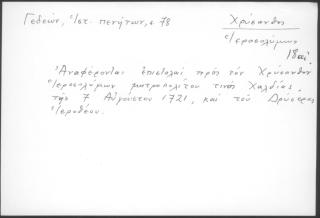 Γεδεών, Ἱστ. πενήτων, σ. 78
Χρύσανθος
Ἱεροσολύμων
18ος αἰ.
Ἀναφέρονται ἐπιστολαί πρός τόν Χρύσανθον
Ἱεροσολύμων μητροπολίτου τινός Χαλδίας,
τῆς 7 Αὐγούστου 1721, καί τοῦ Δρύστρας
Ἱεροθέου.